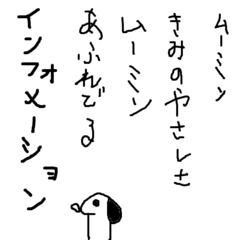 ムーミン
きみのやさしさ
ムーミン
あふれでる
インフォメーション